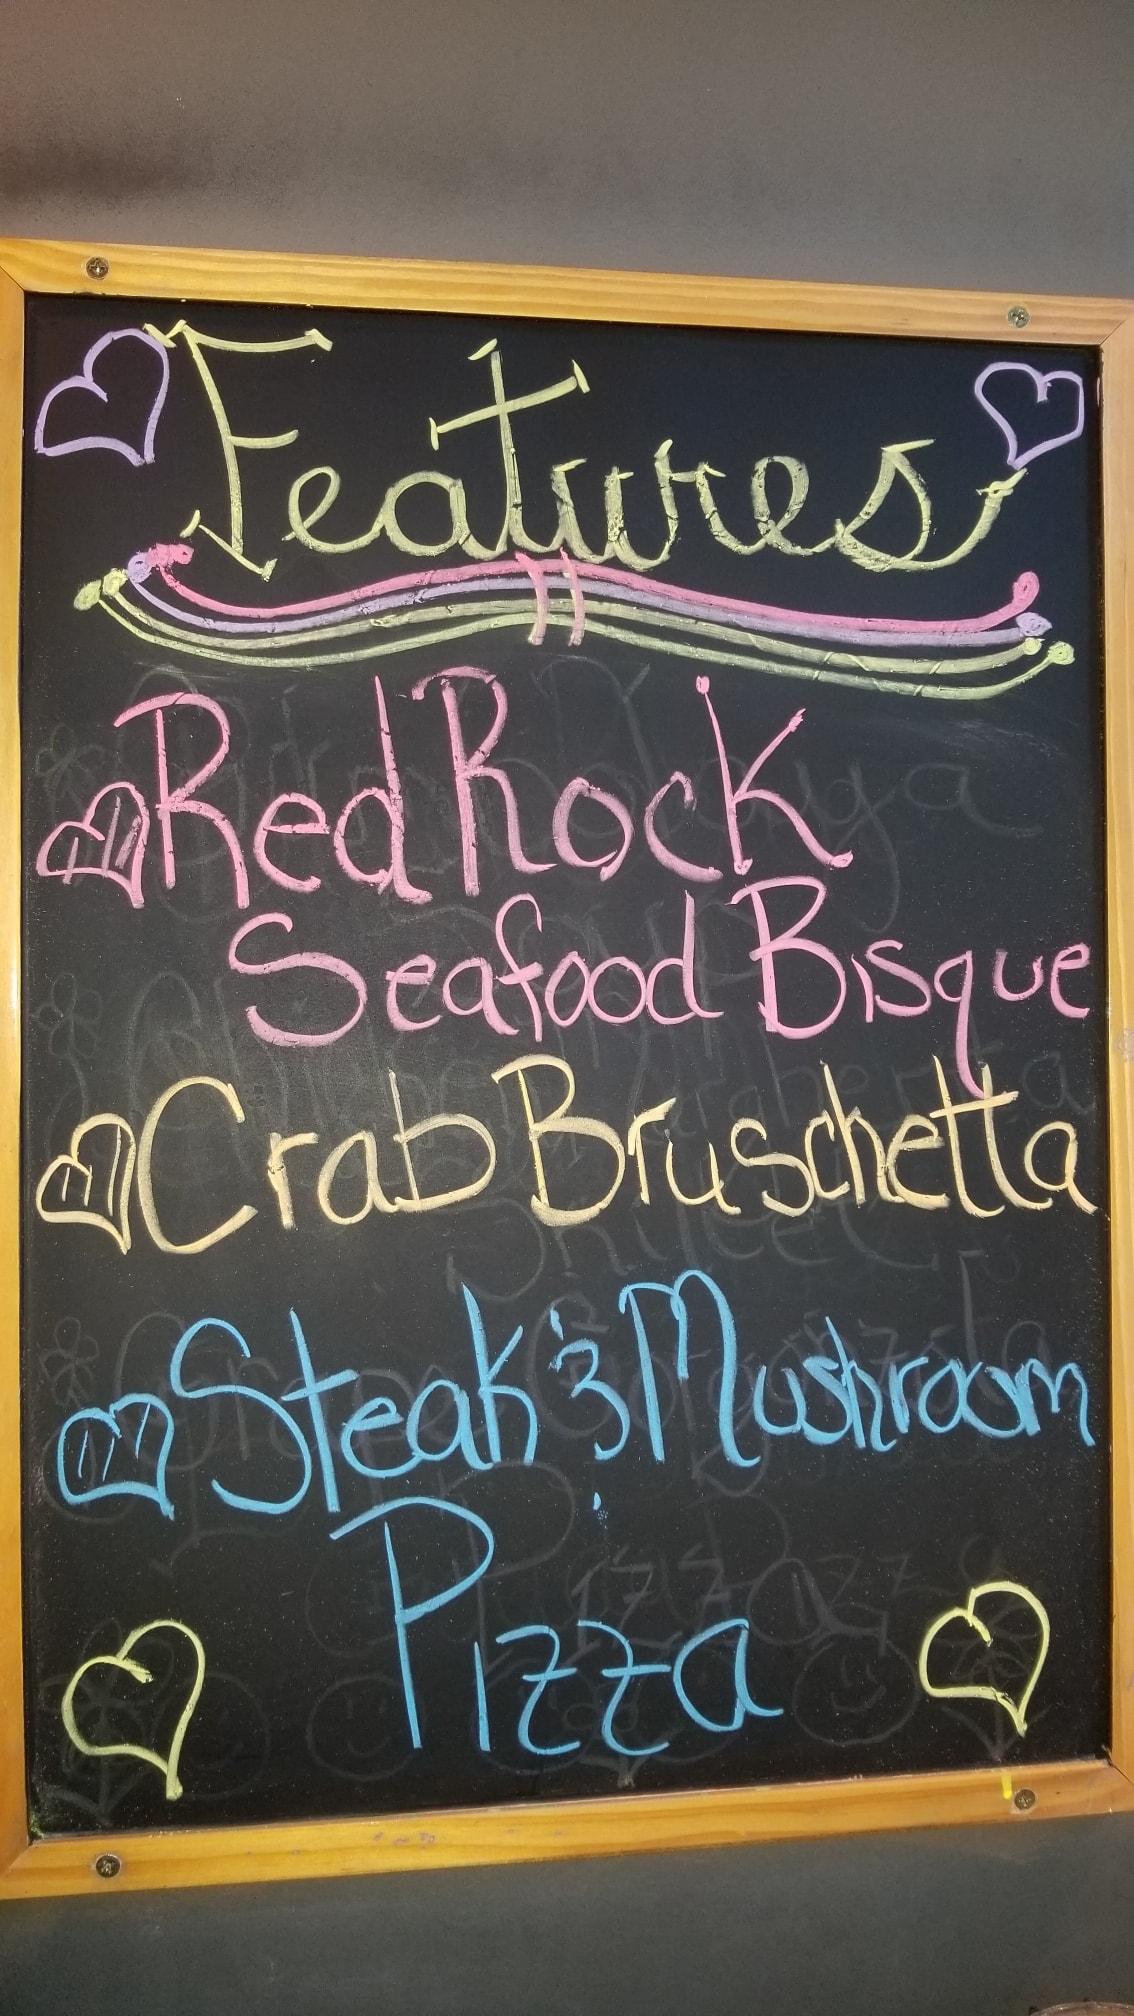 Features
Red Rock
Seafood Bisque
Crab Bruschetta
Steak & Mushroom
Pizza